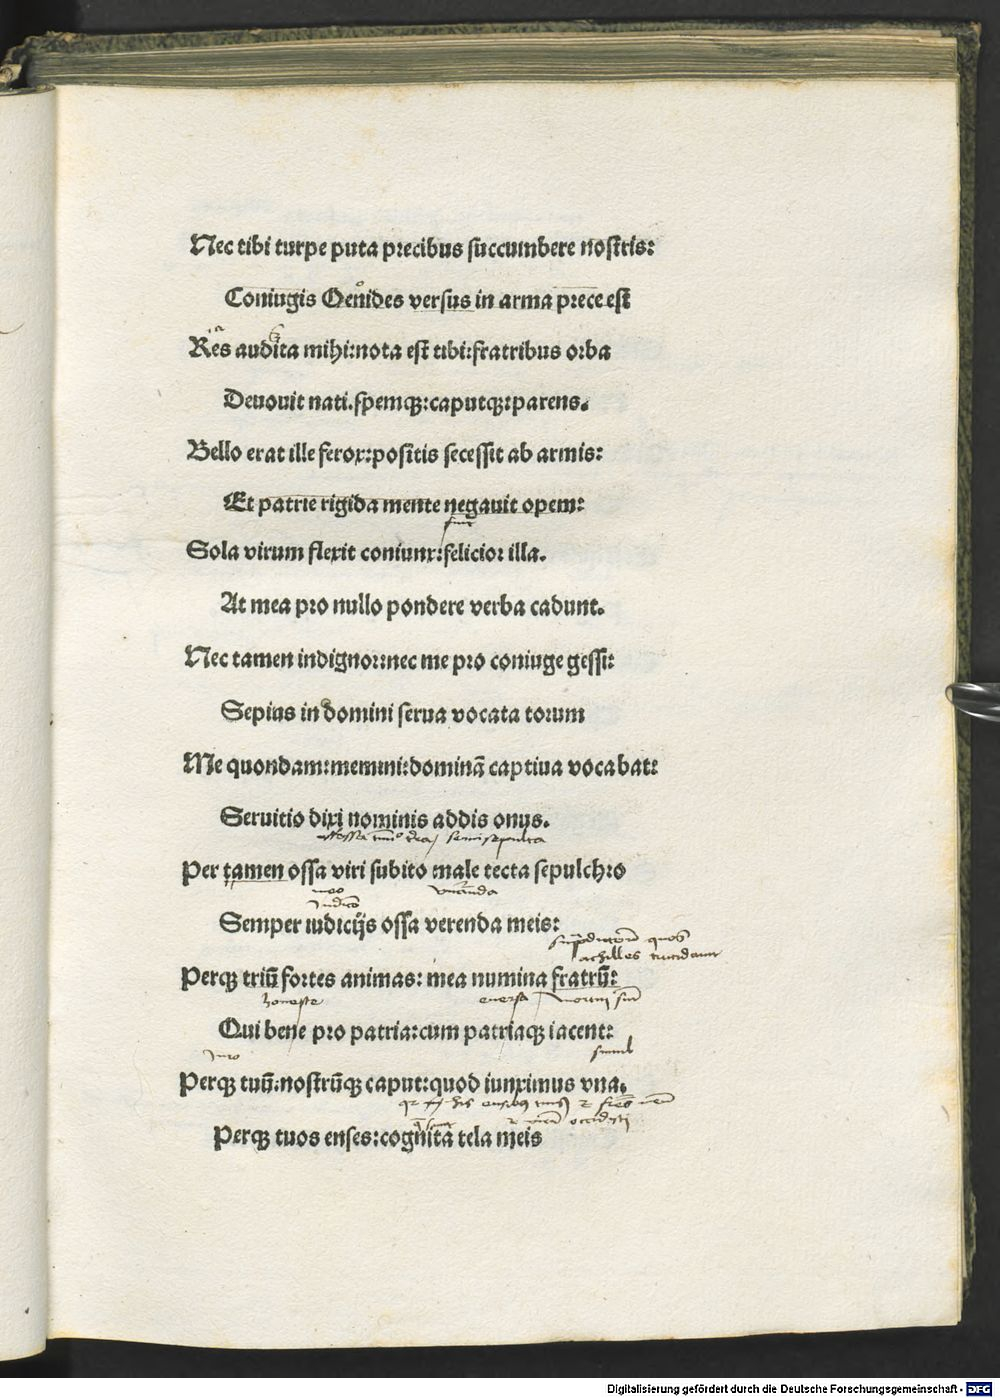 Nec tibi turpe puta precibus succumbere nostris:
Coniugis Oenides versus in arma prece est
Res audita mihi: nota est tibi: fratribus orba
Deuouit nati. spemqꝫ: caputqꝫ: parens.
Bello erat ille ferox: positis secessit ab armis:
Et patrie rigida mente negauit opem:
Sola virum flexit coniunx: felicior illa.
At mea pro nullo pondere verba cadunt.
Nec tamen indignor: nec me pro coniuge gessi:
Sepius in domini serua vocata torum
Me quondam: memini: dominā captiua vocabat:
Seruitio dixi nominis addis onus.
semisepulta
Per tamen ossa viri subito male tecta sepulchro
Semper iudicijs ossa verenda meis:
quos
achilles
Perqꝫ triū fortes animas: mea numina fratrū:
honeste
euersa
Qui bene pro patria: cum patriaqꝫ iacent:
simul
Perqꝫ tuū: nostrūqꝫ caput: quod iunximus vna.
Perqꝫ tuos enses: cognita tela meis
Digitalisierung gefördert durch die Deutsche Forschungsgemeinschaft - DFG